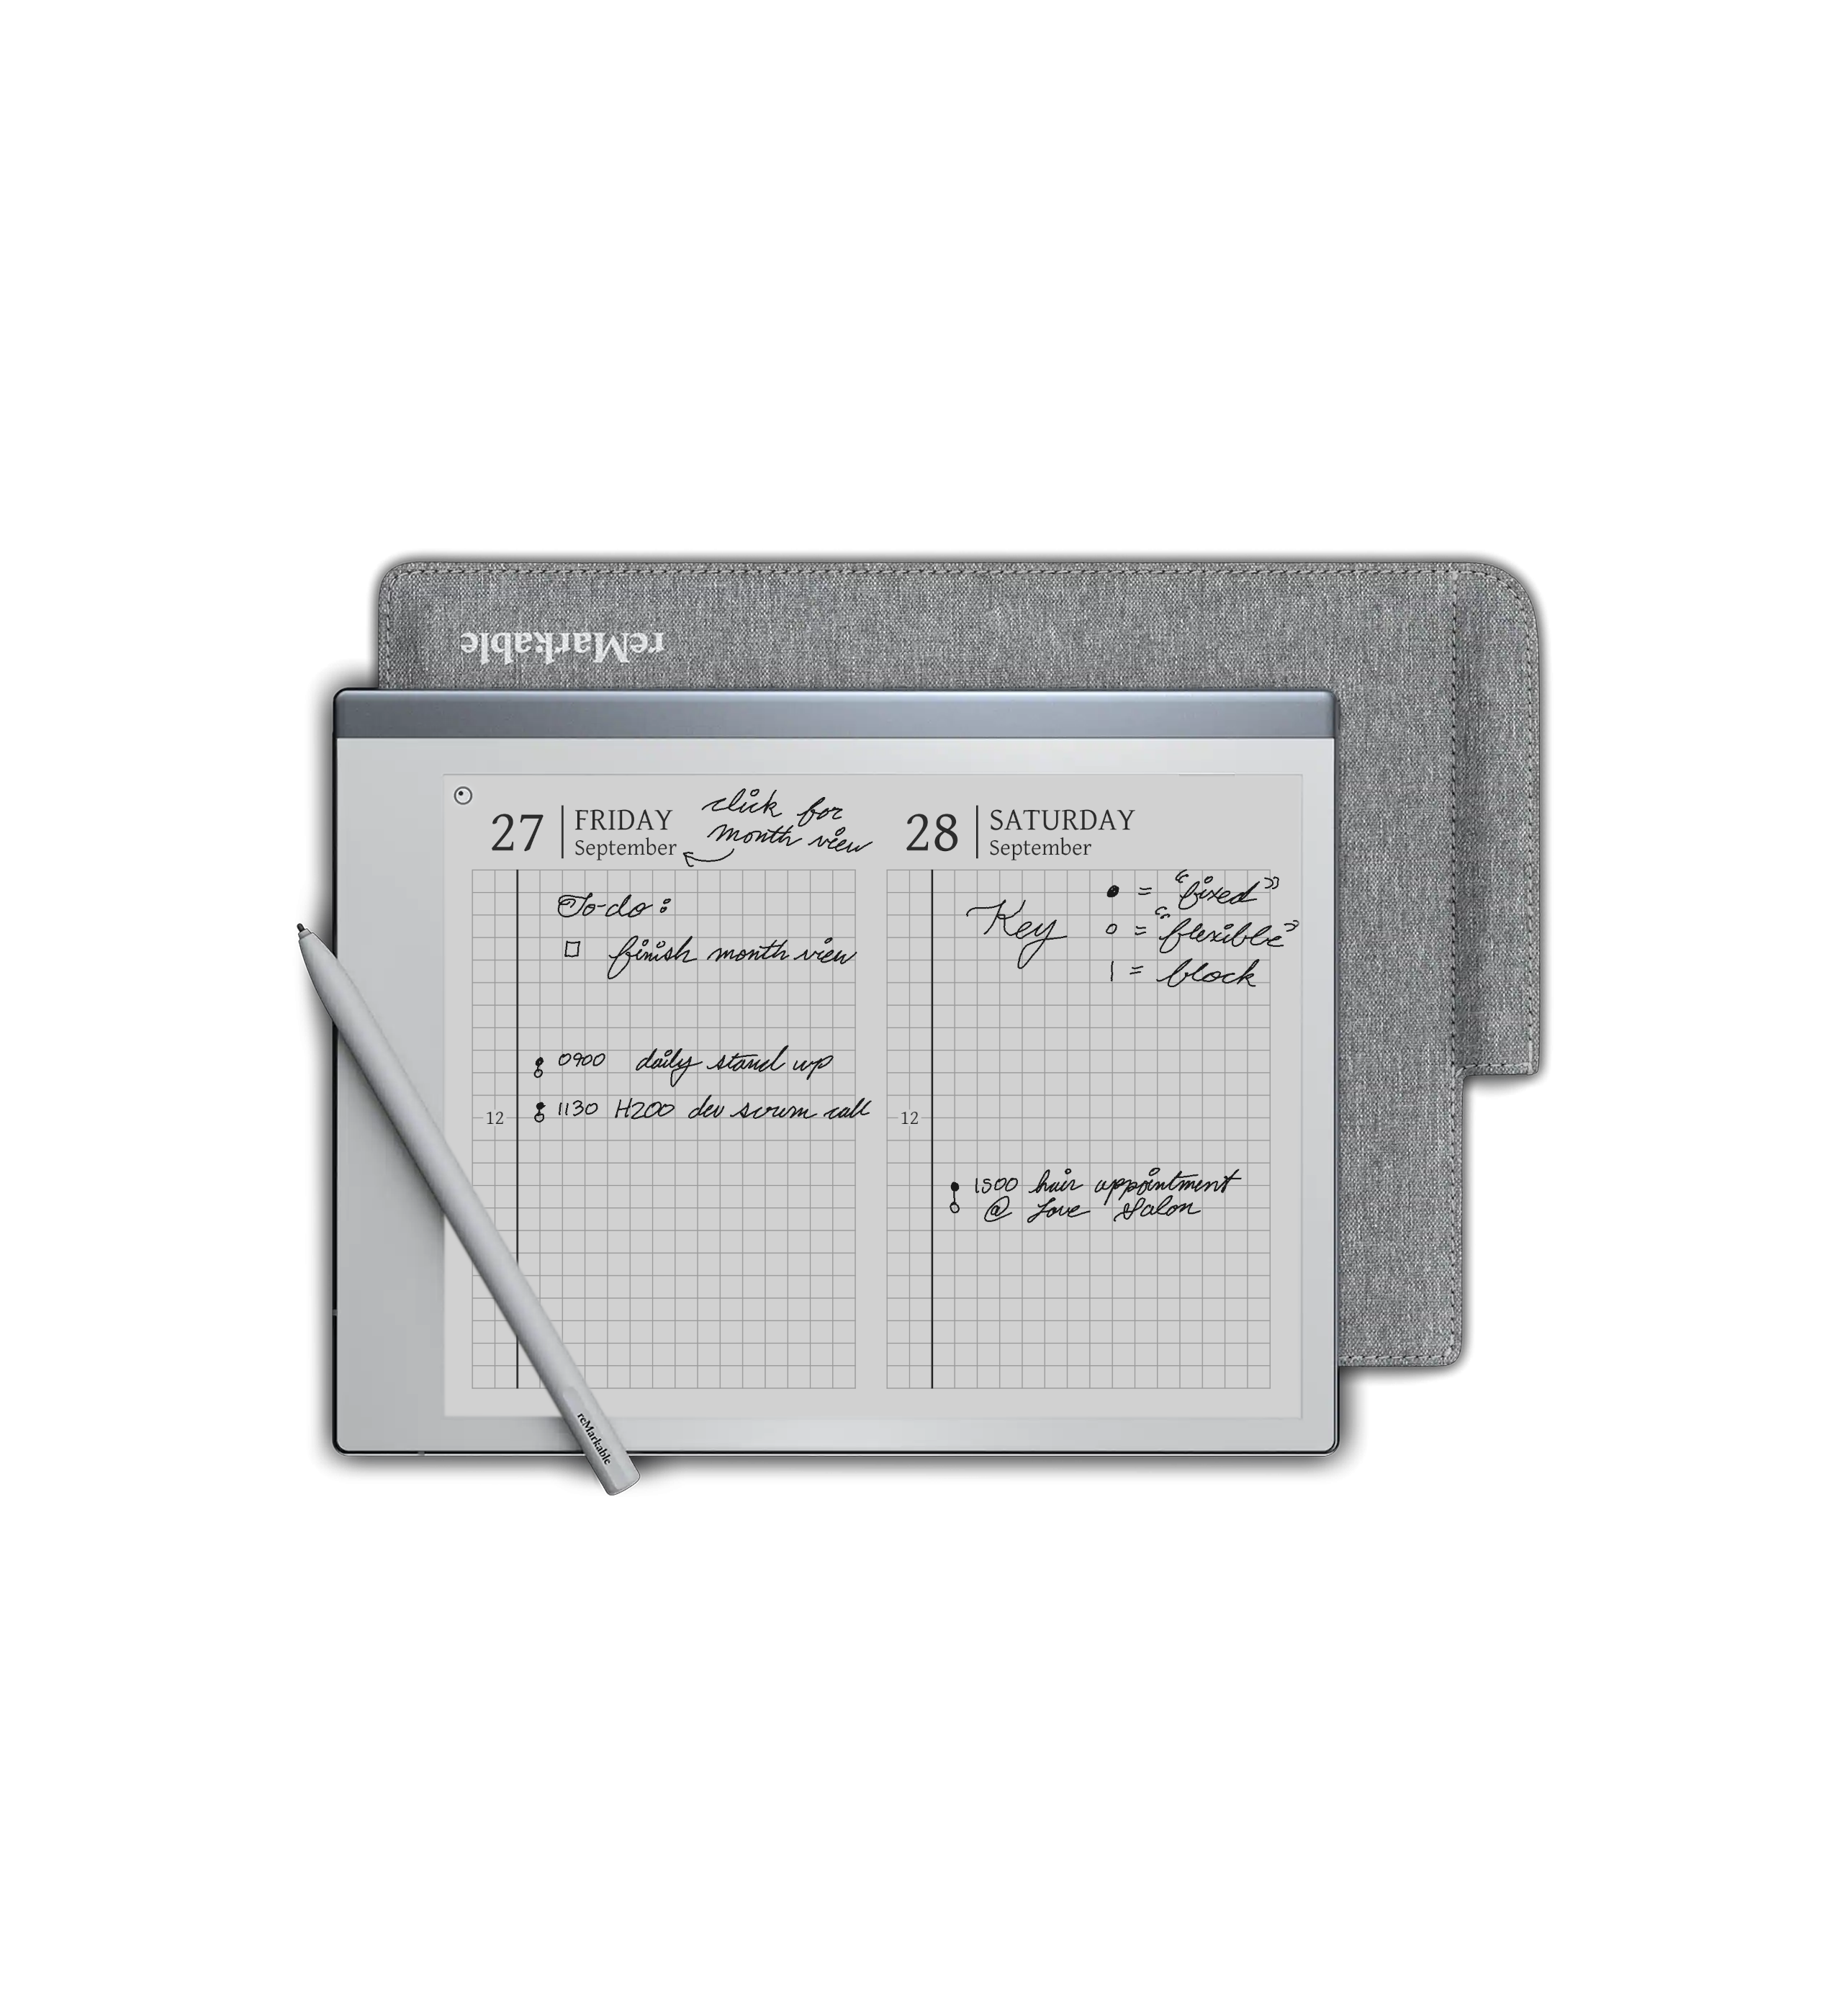 reMarkable
27 FRIDAY
September
click for
month view
To-do:
finish month view
0900 daily stand up
1130 H200 dev scrum call
12
28 SATURDAY
September
Key
● = "fixed"
○ = "flexible"
| = block
12
1500 hair appointment
@ Love Salon
reMarkable